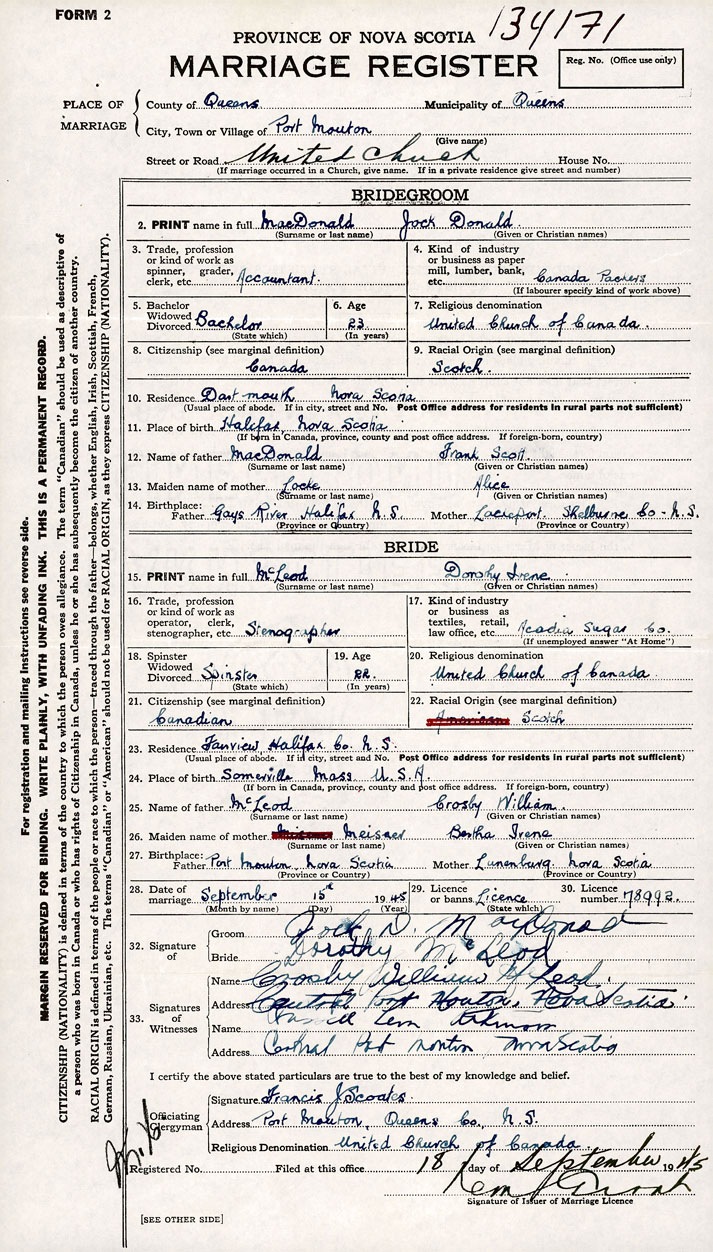 FORM 2
134171
PROVINCE OF NOVA SCOTIA
MARRIAGE REGISTER
Reg. No. (Office use only)
PLACE OF MARRIAGE
County of Queens Municipality of Queens
City, Town or Village of Port Mouton
(Give name)
Street or Road United Church House No.
(If marriage occurred in a Church, give name. If in a private residence give street and number)
BRIDEGROOM
2. PRINT name in full MacDonald Jock Donald
(Surname or last name) (Given or Christian names)
3. Trade, profession or kind of work as spinner, grader, clerk, etc. Accountant.
4. Kind of industry or business as paper mill, lumber, bank, etc. Canada Packers
(If labourer specify kind of work above)
5. Bachelor Widowed Divorced Bachelor
(State which)
6. Age 23
(In years)
7. Religious denomination
United Church of Canada.
8. Citizenship (see marginal definition)
Canada
9. Racial Origin (see marginal definition)
Scotch.
10. Residence Dartmouth Nova Scotia
(Usual place of abode. If in city, street and No. Post Office address for residents in rural parts not sufficient)
11. Place of birth Halifax, Nova Scotia
(If born in Canada, province, county and post office address. If foreign-born, country)
12. Name of father MacDonald Frank Scott
(Surname or last name) (Given or Christian names)
13. Maiden name of mother Locke Alice
(Surname or last name) (Given or Christian names)
14. Birthplace: Father Gays River Halifax N.S. Mother Lockeport. Shelburne Co - N.S.
(Province or Country) (Province or Country)
BRIDE
15. PRINT name in full McLeod Dorothy Irene
(Surname or last name) (Given or Christian names)
16. Trade, profession or kind of work as operator, clerk, stenographer, etc. Stenographer
17. Kind of industry or business as textiles, retail, law office, etc. Acadia Sugar Co.
(If unemployed answer "At Home")
18. Spinster Widowed Divorced Spinster
(State which)
19. Age 22.
(In years)
20. Religious denomination
United Church of Canada.
21. Citizenship (see marginal definition)
Canadian
22. Racial Origin (see marginal definition)
American Scotch
23. Residence Fairview, Halifax Co. N.S.
(Usual place of abode. If in city, street and No. Post Office address for residents in rural parts not sufficient)
24. Place of birth Somerville Mass U.S.A.
(If born in Canada, province, county and post office address. If foreign-born, country)
25. Name of father McLeod Crosby William.
(Surname or last name) (Given or Christian names)
26. Maiden name of mother Meisner Bertha Irene
(Surname or last name) (Given or Christian names)
27. Birthplace: Father Port Mouton, Nova Scotia Mother Lunenburg, Nova Scotia
(Province or Country) (Province or Country)
28. Date of marriage September 15th 1945
(Month by name) (Day) (Year)
29. Licence or banns Licence
(State which)
30. Licence number 78992.
32. Signature of
Groom Jock D. MacDonald
Bride Dorothy McLeod
33. Signatures of Witnesses
Name Crosby William McLeod.
Address Central Port Mouton, Nova Scotia.
Name
Address Central Port Mouton Nova Scotia
I certify the above stated particulars are true to the best of my knowledge and belief.
Officiating Clergyman
Signature Francis J Scoates
Address Port Mouton, Queens Co., N.S.
Religious Denomination United Church of Canada
Registered No. Filed at this office 18 day of September 1945
Signature of Issuer of Marriage Licence
[SEE OTHER SIDE]
For registration and mailing instructions see reverse side.
MARGIN RESERVED FOR BINDING. WRITE PLAINLY, WITH UNFADING INK. THIS IS A PERMANENT RECORD.
CITIZENSHIP (NATIONALITY) is defined in terms of the country to which the person owes allegiance. The term "Canadian" should be used as descriptive of
a person who was born in Canada or who has rights of Citizenship in Canada, unless he or she has subsequently become the citizen of another country.
RACIAL ORIGIN is defined in terms of the people or race to which the person—traced through the father—belongs, whether English, Irish, Scottish, French,
German, Russian, Ukrainian, etc. The terms "Canadian" or "American" should not be used for RACIAL ORIGIN, as they express CITIZENSHIP (NATIONALITY).